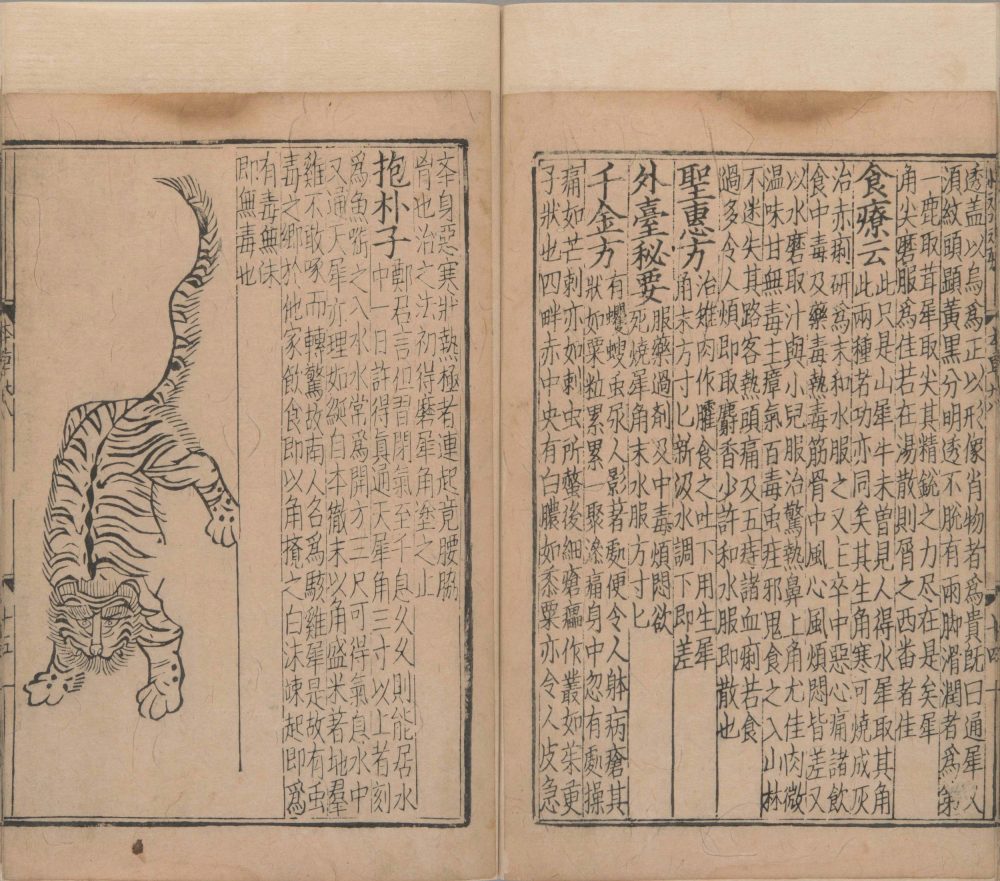 透盖以烏爲正以形像肖物者爲貴既曰通犀又
湏紋頭顯黃黑分明透不脫有兩脚滑潤者爲第
一鹿取茸犀取尖其精銳之力尽在是矣犀
角尖磨服爲佳若在湯散則屑之西畨者佳
食療云 此只是山犀牛未曾見人得水犀取其角
此兩種者功亦同矣其生角寒可燒成灰
治赤痢研爲末和水服之又主卒中惡心痛諸飲
食中毒及藥毒熱毒筋骨中風心風煩悶皆差又
以水磨取汁與小兒服治驚熱鼻上角尤佳肉微
温味甘無毒主瘴氣百毒虫疰邪鬼食之入山林
不迷失其路客熱頭痛及五痔諸血痢若食
過多令人煩即取麝香少許和水服即散也
聖惠方 治雉肉作臛食之吐下用生犀
角末方寸匕新汲水調下即差
外臺秘要 服藥過剤及中毒煩悶欲
死燒犀角末水服方寸匕
千金方 有蠼螋虫尿人影著處便令人躰病瘡其
狀如粟粒累累一聚滲痛身中忽有處操
痛如芒刺亦如刺虫所螫後細瘡作叢如茱更
子狀也四畔赤中央有白膿如黍粟亦令人皮急
夲身惡寒狀熱極者連起竟腰脇
胷也治之法初得磨犀角塗之止
抱朴子 鄭君言但習閉氣至千息久久則能居水
中一日許得真通天犀角三寸以上者刻
爲魚㘅之入水水常爲開方三尺可得氣息水中
又通天犀亦理如綖自本徹末以角盛米著地羣
雞不敢啄而轉驚故南人名爲駭雞犀是故有虫
毒之鄉於他家飲食即以角攪之白沫竦起即爲
有毒無沫
即無毒也